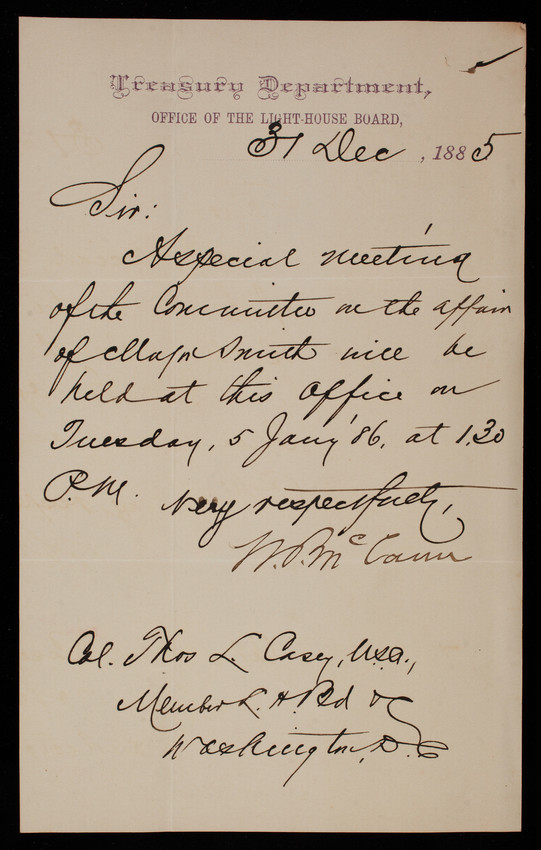 Treasury Department,
OFFICE OF THE LIGHT-HOUSE BOARD,
31 Dec , 1885
Sir:
A special meeting
of the Committee on the affair
of Major Smith will be
held at this office on
Tuesday, 5 Jany '86, at 1.30
P.M. Very respectfully,
W. P. McCann
Col. Thos L. Casey, U.S.A.,
Member L. H. Bd &c
Washington, D.C.